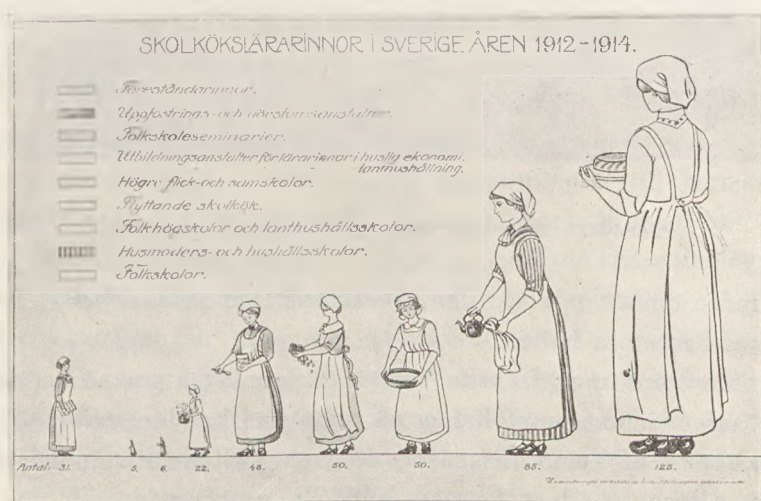 SKOLKÖKSLÄRARINNOR I SVERIGE ÅREN 1912-1914.
Föreståndarinnor.
Uppfostrings- och
Folkskoleseminarier.
Utbildningsanstalter för lärarinnor i huslig ekonomi.
lanthushållning.
Högre flick- och samskolor.
Flyttande skolkök.
Folkhögskolor och lanthushållsskolor.
Husmoders- och hushållsskolor.
Folkskolor.
Antal: 31. 5. 6. 22. 48. 50. 50. 85. 125.